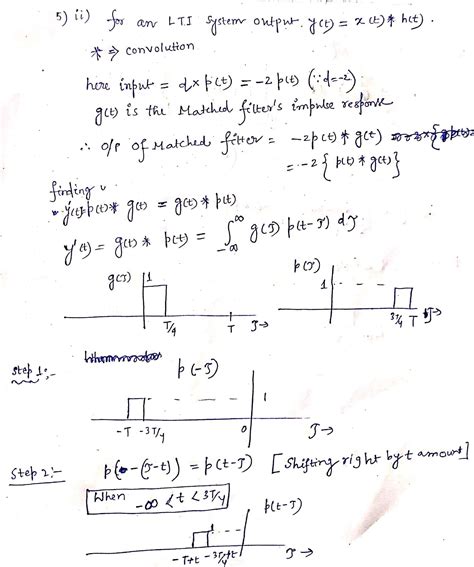 5) ii) for an LTI System output y(t) = x(t) * h(t).
* ⇒ convolution
here input = d × p(t) = -2 p(t) (∵ d=-2)
g(t) is the Matched filter's impulse response
∴ o/p of Matched filter = -2p(t) * g(t)
= -2 { p(t) * g(t) }
finding
p(t) * g(t) = g(t) * p(t)
y'(t) = g(t) * p(t) = ∫_{-∞}^{∞} g(τ) p(t-τ) dτ
g(τ) 1 T/4 T τ→
p(τ) 1 3T/4 T τ→
Step 1:-
p(-τ)
1
-T -3T/4 0 τ→
Step 2:- p(-(τ-t)) = p(t-τ) [Shifting right by t amount]
When -∞ < t < 3T/4
p(t-τ)
-T+t -3T/4+t τ→